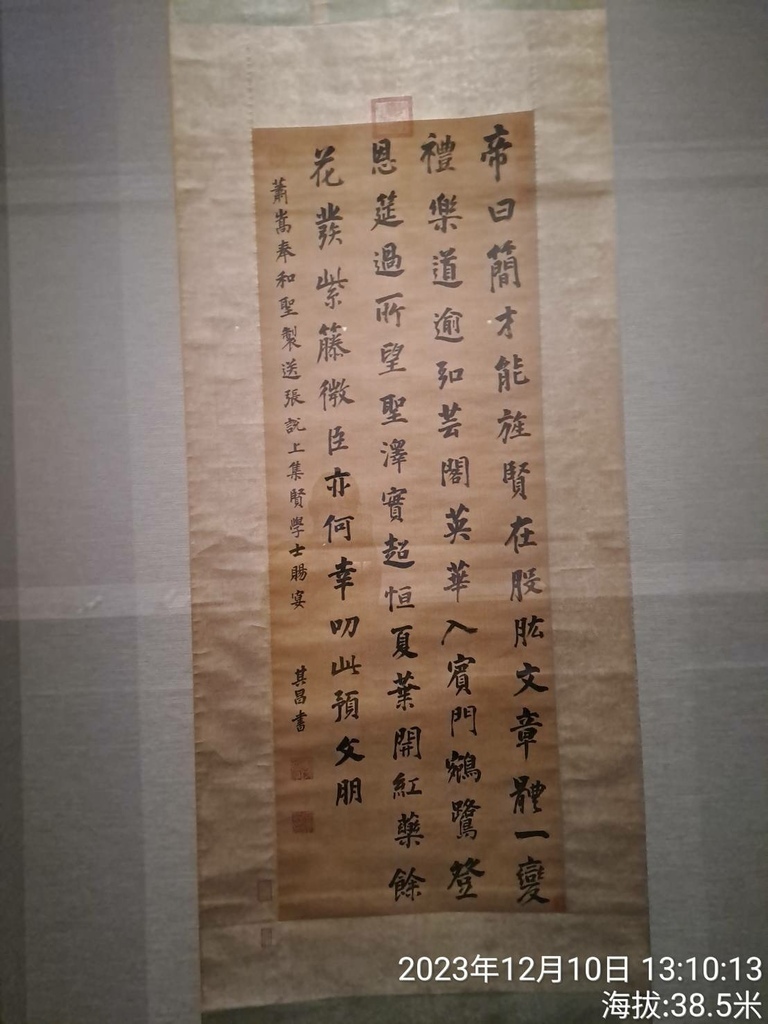 帝曰簡才能旌賢在股肱文章體一變
禮樂道逾弘芸閣英華入賓門鵷鷺登
恩筵過所望聖澤實超恒夏葉開紅藥餘
花發紫藤微臣亦何幸叨此預文朋
蕭嵩奉和聖製送張說上集賢學士賜宴
其昌書
2023年12月10日 13:10:13
海拔:38.5米